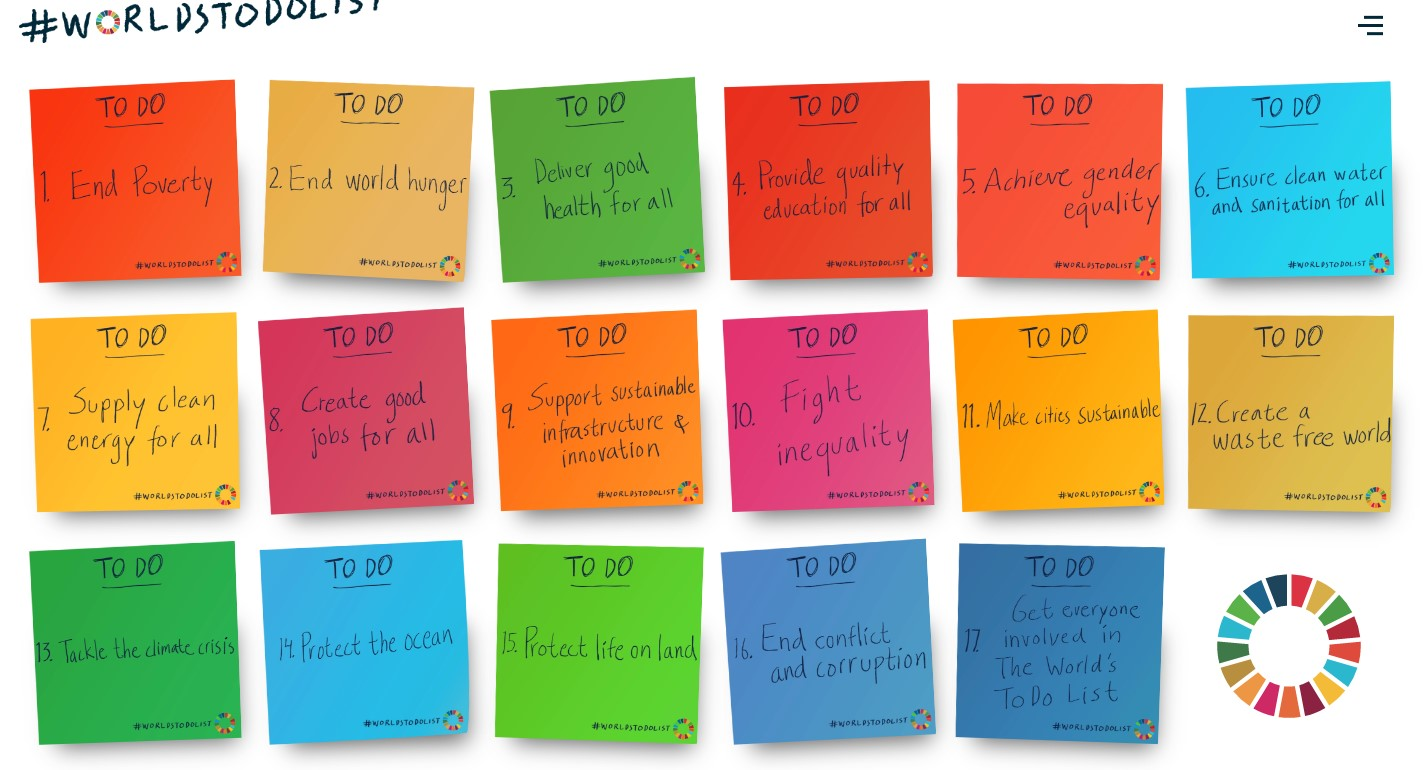 #WORLDSTODOLIST
TO DO
1. End Poverty
#WORLDSTODOLIST
TO DO
2. End world hunger
#WORLDSTODOLIST
TO DO
3. Deliver good
health for all
#WORLDSTODOLIST
TO DO
4. Provide quality
education for all
#WORLDSTODOLIST
TO DO
5. Achieve gender
equality
#WORLDSTODOLIST
TO DO
6. Ensure clean water
and sanitation for all
#WORLDSTODOLIST
TO DO
7. Supply clean
energy for all
#WORLDSTODOLIST
TO DO
8. Create good
jobs for all
#WORLDSTODOLIST
TO DO
9. Support sustainable
infrastructure &
innovation
#WORLDSTODOLIST
TO DO
10. Fight
inequality
#WORLDSTODOLIST
TO DO
11. Make cities sustainable
#WORLDSTODOLIST
TO DO
12. Create a
waste free world
#WORLDSTODOLIST
TO DO
13. Tackle the climate crisis
#WORLDSTODOLIST
TO DO
14. Protect the ocean
#WORLDSTODOLIST
TO DO
15. Protect life on land
#WORLDSTODOLIST
TO DO
16. End conflict
and corruption
#WORLDSTODOLIST
TO DO
17. Get everyone
involved in
The World's
To Do List
#WORLDSTODOLIST